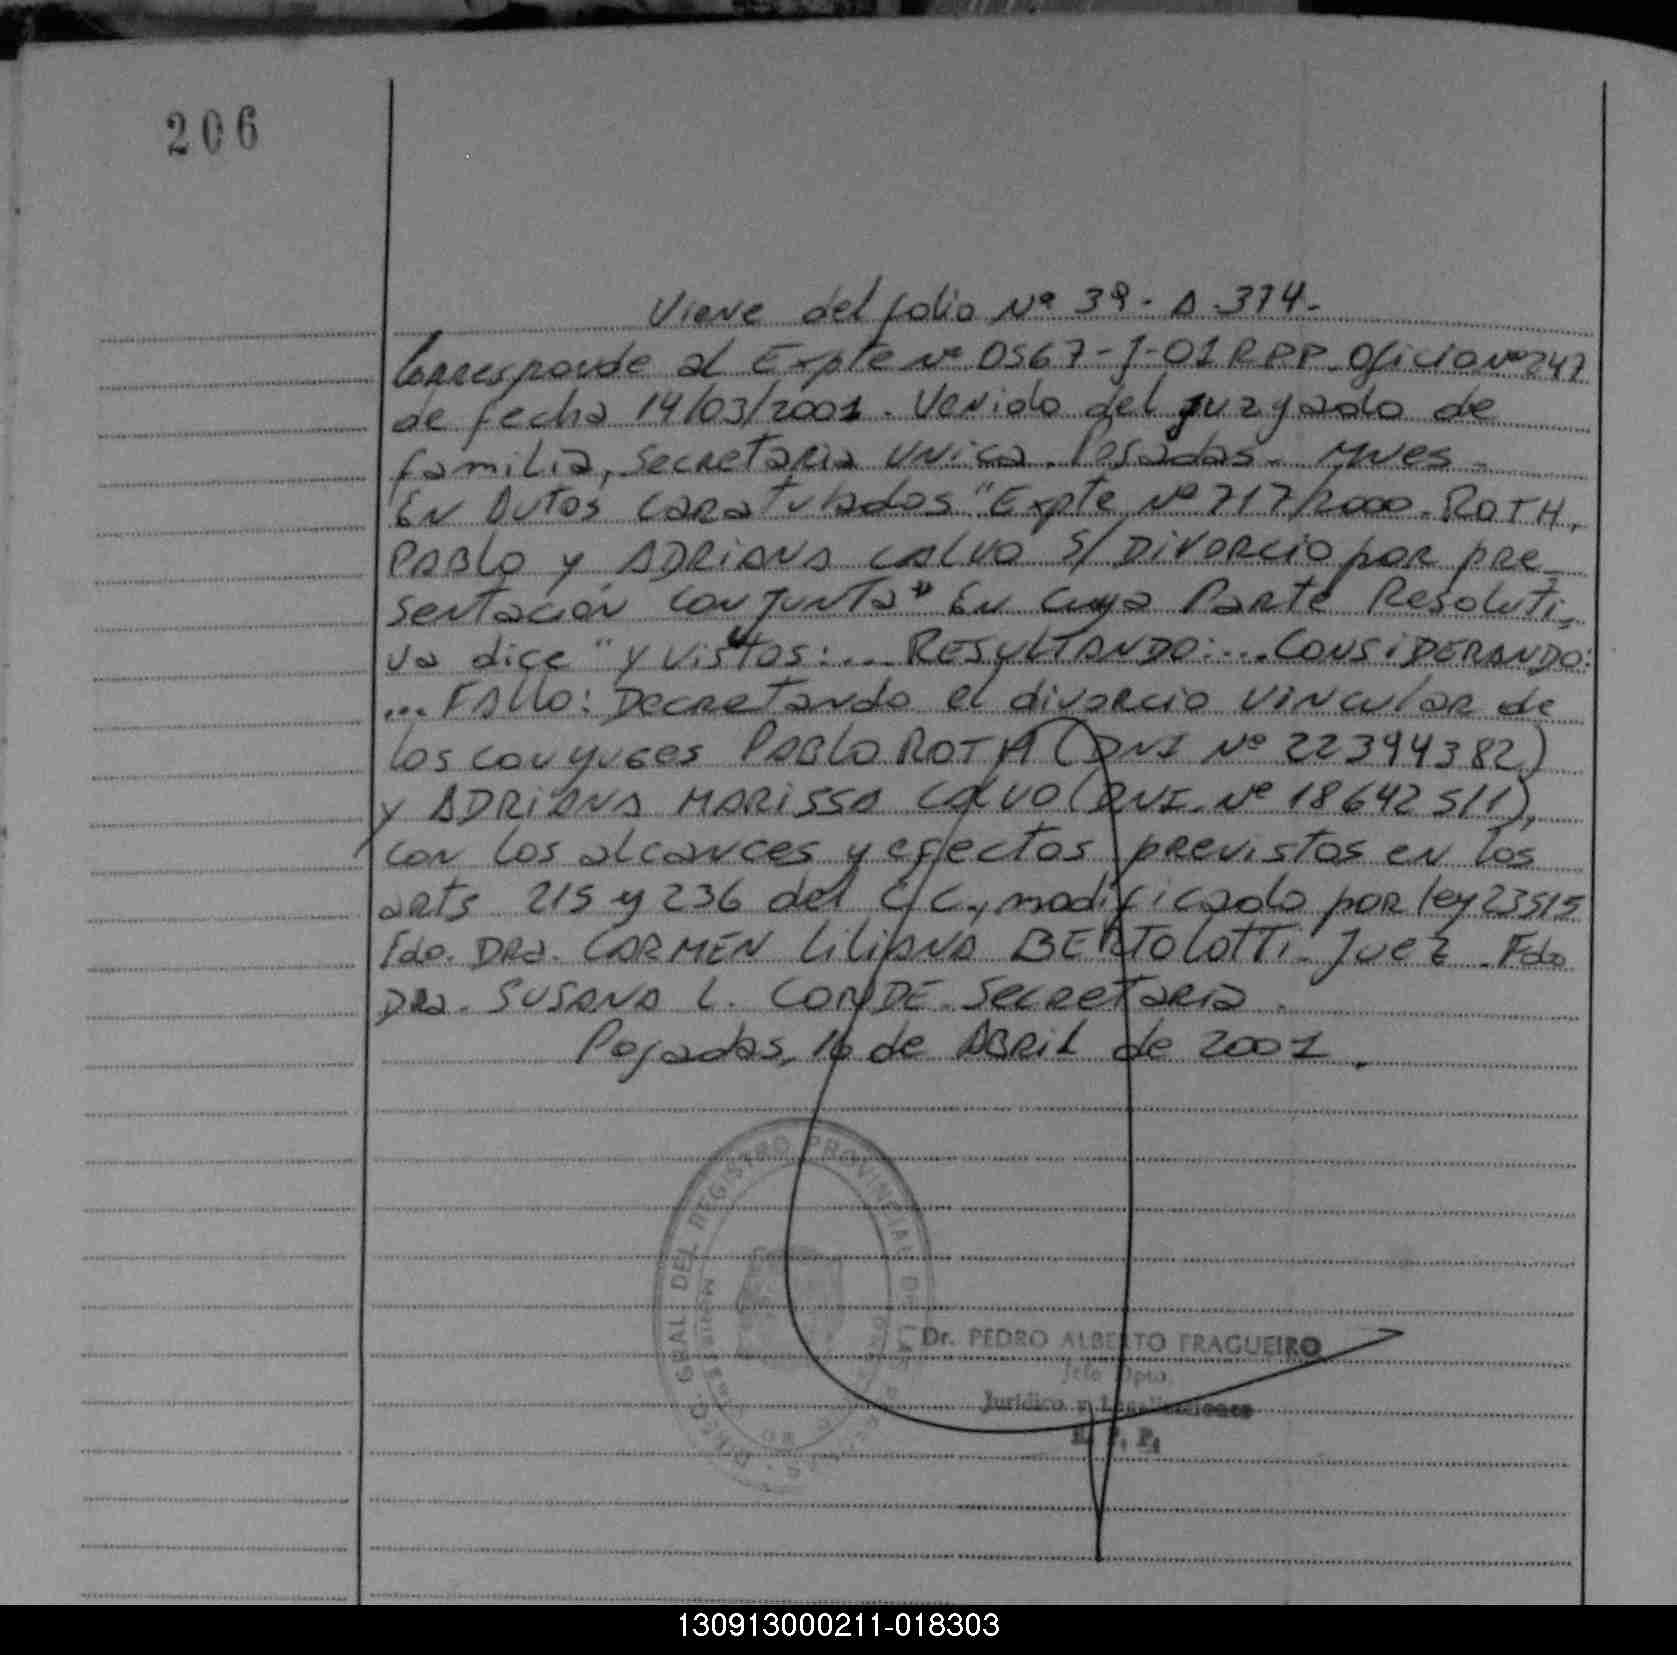 206
Viene del folio Nº 39 - A. 374 -
Corresponde al Expte Nº 0567-J-01 RPP. Oficio Nº 247
de fecha 14/03/2001. Venido del juzgado de
familia, Secretaria Unica. Posadas - Mnes -
En Autos caratulados "Expte Nº 717/2000 - ROTH,
PABLO y ADRIANA CALVO S/ Divorcio por pre
sentación conjunta" En cuya Parte Resoluti=
va dice "y vistos: ... RESULTANDO: ... CONSIDERANDO:
... FALLO: Decretando el divorcio vincular de
los conyuges PABLO ROTH (DNI Nº 22394382)
y ADRIANA MARISSA CALVO (DNI Nº 18642511),
con los alcances y efectos previstos en los
arts 215 y 236 del C.C., modificado por ley 23515
Fdo. DRA. CARMEN LILIANA BERTOLOTTI - Juez - Fdo
DRA. SUSANA L. CONDE - Secretaria.
Posadas, 16 de ABRIL de 2001.
GRAL DEL REGISTRO PROVINCIAL DE LAS
Dr. PEDRO ALBERTO FRAGUEIRO
Jefe Dpto.
Jurídico y Legalizaciones
R. P. P.
130913000211-018303